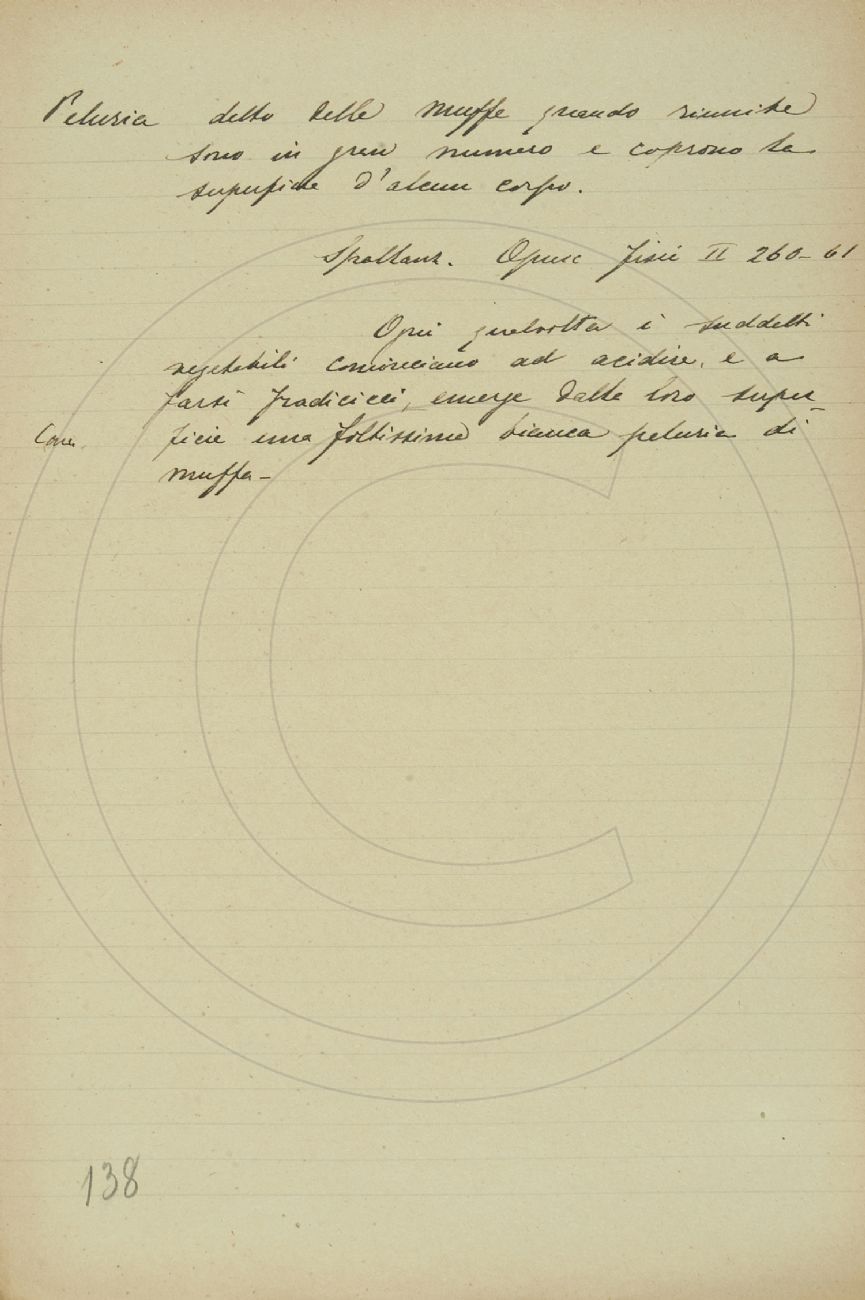 Peluria detto delle muffe quando riunite
sono in gran numero e coprono la
superficie d'alcun corpo.
Spallanz. Opusc fisic II 260-61
Ogni qualvolta i suddetti
vegetabili cominciano ad acidire, e a
farsi fradicicci, emerge dalla loro super-
ficie una foltissima bianca peluria di
muffa-
138